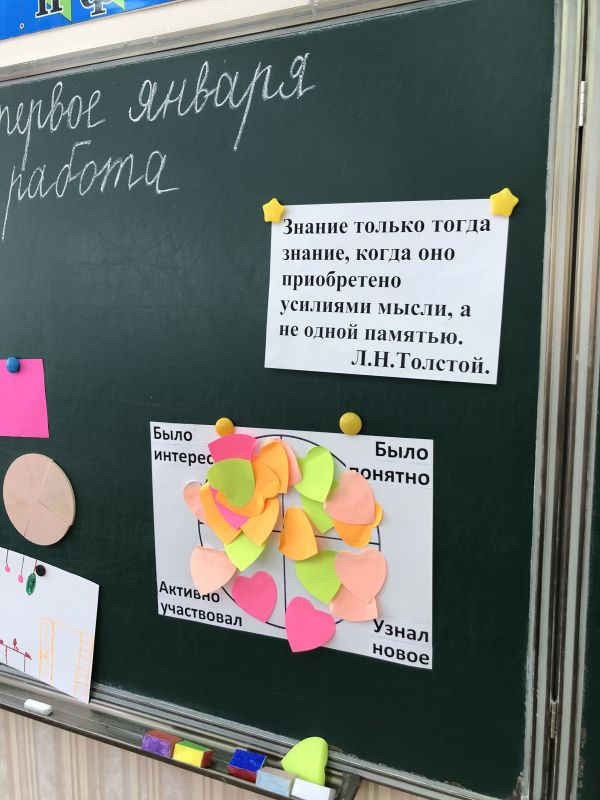 первое января
работа
Знание только тогда
знание, когда оно
приобретено
усилиями мысли, а
не одной памятью.
Л.Н.Толстой.
Было
интерес
Было
понятно
Активно
участвовал
Узнал
новое